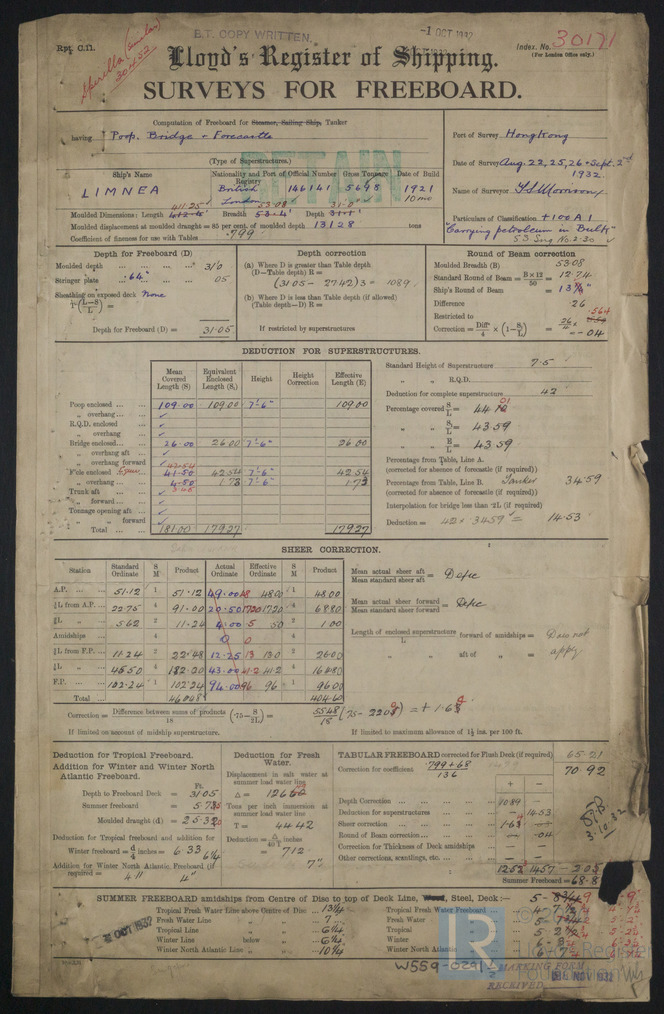 B.T. COPY WRITTEN.
-1 OCT 1932
Rpt. C.11.
Index. No. 30171
(For London Office only.)
Lloyd's Register of Shipping.
SURVEYS FOR FREEBOARD.
Computation of Freeboard for Steamer, Sailing Ship, Tanker
having Poop, Bridge & Forecastle
(Type of Superstructures.)
Port of Survey Hongkong
Date of Survey Aug. 22, 25, 26 & Sept. 2nd
1932.
Name of Surveyor
Particulars of Classification +100A1
"Carrying petroleum in Bulk"
Ship's Name
Nationality and Port of Registry
Official Number
Gross Tonnage
Date of Build
LIMNEA
British
London
146141
5698
1921
10mo
Moulded Dimensions: Length 411.25 Breadth 53.08 Depth 31.0
Moulded displacement at moulded draught = 85 per cent. of moulded depth 13128 tons
Coefficient of fineness for use with Tables .799
Depth for Freeboard (D)
Moulded depth 31.0
Stringer plate .64" .05
Sheathing on exposed deck None
Depth for Freeboard (D) = 31.05
Depth correction
(a) Where D is greater than Table depth
(D—Table depth) R =
(31.05 - 27.42) 3 = 10.89
(b) Where D is less than Table depth (if allowed)
(Table depth—D) R =
If restricted by superstructures
Round of Beam correction
Moulded Breadth (B) 53.08
Standard Round of Beam = B × 12 / 50 = 12.74
Ship's Round of Beam = 13
Difference .26
Restricted to
Correction = Diff / 4 × (1 - S₁/L) = .26/4 × .564 = -.04
DEDUCTION FOR SUPERSTRUCTURES.
Mean Covered Length (S) | Equivalent Enclosed Length (S₁) | Height | Height Correction | Effective Length (E)
Poop enclosed 109.00 109.00 7'-6" 109.00
" overhang
R.Q.D. enclosed
" overhang
Bridge enclosed 26.00 26.00 7'-6" 26.00
" overhang aft
" overhang forward
F'cle enclosed 41.50 42.54 7'-6" 42.54
" overhang 4.50 1.73 7'-6" 1.73
Trunk aft
" forward
Tonnage opening aft
" " forward
Total 181.00 179.27 179.27
Standard Height of Superstructure 7.5
" " R.Q.D.
Deduction for complete superstructure 42
Percentage covered S/L = 44.01
" S₁/L = 43.59
" E/L = 43.59
Percentage from Table, Line A.
(corrected for absence of forecastle (if required))
Percentage from Table, Line B. Tanker 34.59
(corrected for absence of forecastle (if required))
Interpolation for bridge less than ·2L (if required)
Deduction = 42 × 34.59 = 14.53
SHEER CORRECTION.
Station | Standard Ordinate | S M | Product | Actual Ordinate | Effective Ordinate | S M | Product
A.P. 51.12 1 51.12 49.00 48 48.00 1 48.00
⅙L from A.P. 22.75 4 91.00 20.50 17.20 17.20 4 68.80
⅓L 5.62 2 11.24 4.00 .50 .50 2 1.00
Amidships 4 0 0 4
⅓L from F.P. 11.24 2 22.48 12.25 13 13.0 2 26.00
⅙L 45.50 4 182.20 43.00 41.2 41.2 4 164.80
F.P. 102.24 1 102.24 94.00 96 96 1 96.00
Total 460.08 404.60
Mean actual sheer aft / Mean standard sheer aft = Defic
Mean actual sheer forward / Mean standard sheer forward = Defic
Length of enclosed superstructure / L forward of amidships = Does not
" aft of " = apply
Correction = Difference between sums of products / 18 (·75 - S/2L) = 55.48/18 (.75 - .220) = + 1.64
If limited on account of midship superstructure.
If limited to maximum allowance of 1½ ins. per 100 ft.
Deduction for Tropical Freeboard.
Addition for Winter and Winter North Atlantic Freeboard.
Ft.
Depth to Freeboard Deck = 31.05
Summer freeboard =
Moulded draught (d) =
Deduction for Tropical freeboard and addition for
Winter freeboard = d/4 inches = 6.33 6¼
Addition for Winter North Atlantic Freeboard (if required) = 4.11 4"
Deduction for Fresh Water.
Displacement in salt water at summer load water line
Δ =
Tons per inch immersion at summer load water line
T = 44.42
Deduction = Δ / 40T inches
= 7.12
7"
TABULAR FREEBOARD corrected for Flush Deck (if required) 65.21
Correction for coefficient .799 + .68 / 1.36 70.92
+ -
Depth Correction 10.89
Deduction for superstructures 14.53
Sheer correction 1.64
Round of Beam correction .04
Correction for Thickness of Deck amidships
Other corrections, scantlings, etc.
12.53 14.57 2.05
Summer Freeboard = 68.8
3.10.32
SUMMER FREEBOARD amidships from Centre of Disc to top of Deck Line, Wood, Steel, Deck:—
Tropical Fresh Water Line above Centre of Disc 13¼
Fresh Water Line " 7
Tropical Line " 6¼
Winter Line below 6¼
Winter North Atlantic Line " 10¼
Tropical Fresh Water Freeboard
Fresh Water "
Tropical "
Winter "
Winter North Atlantic "
OCT 1932
W559-0291
MARKING FORM
RECEIVED
NOV 1932